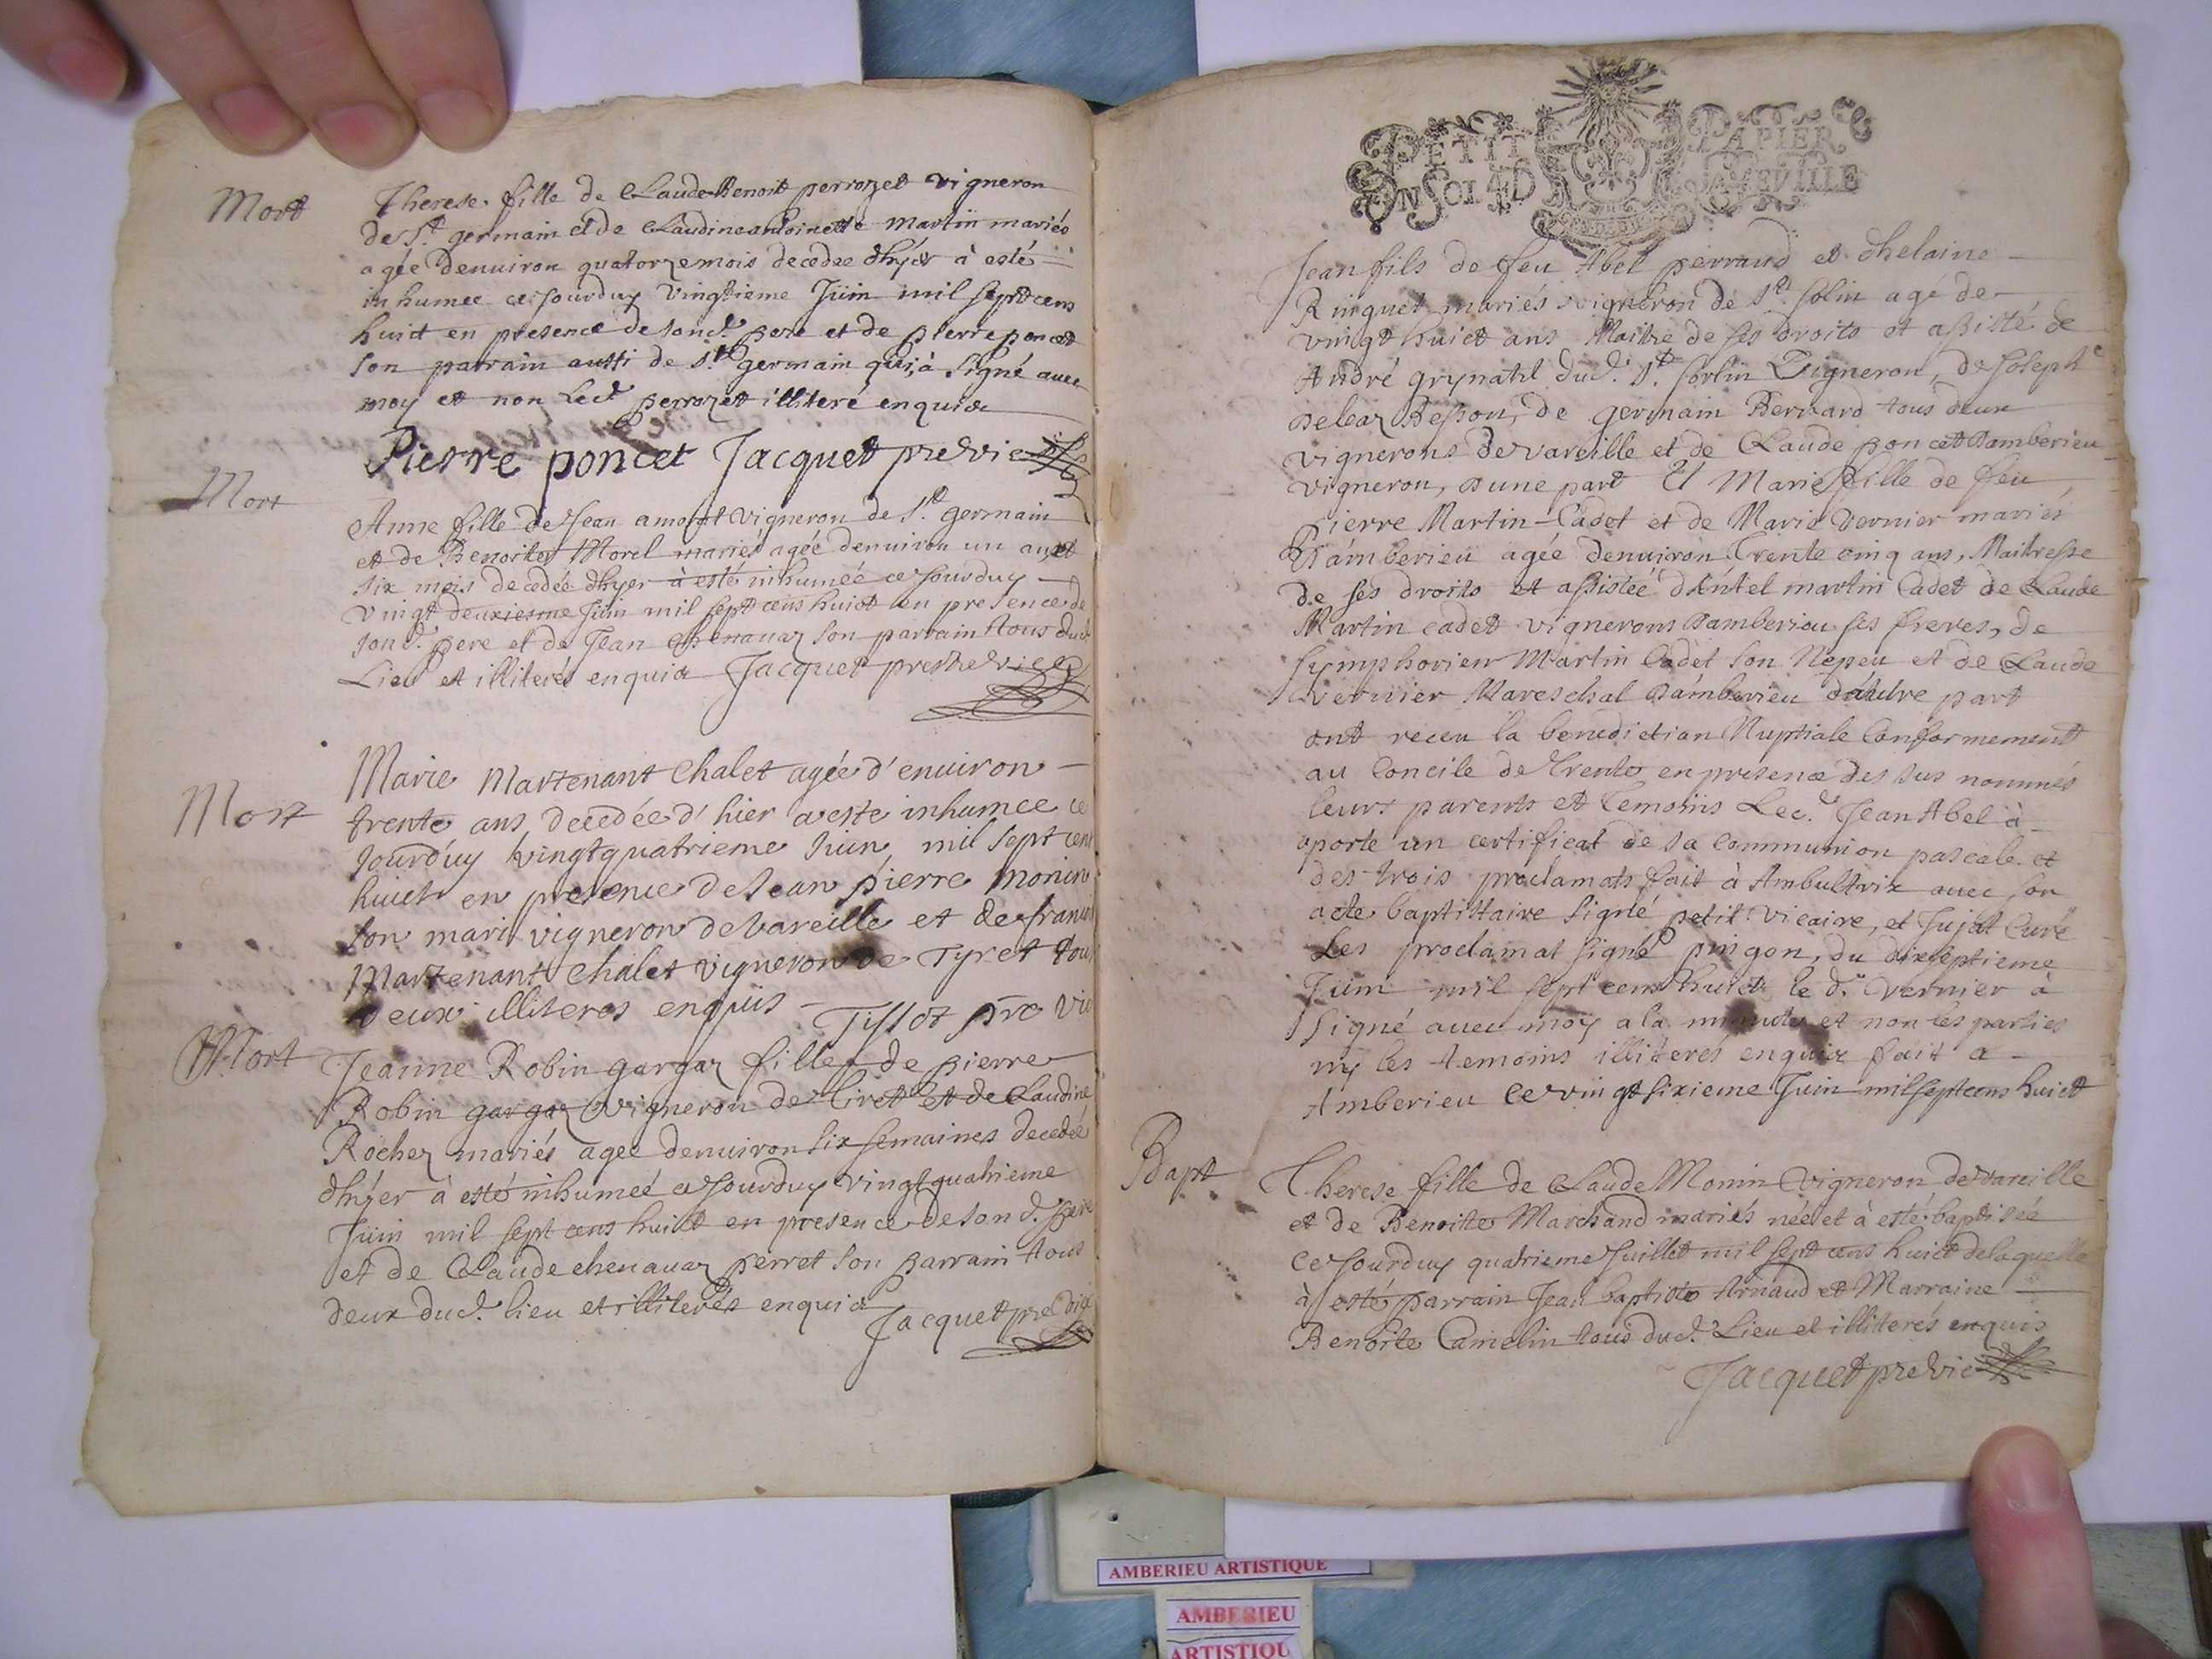 Mort
Therese fille de Claude Benoit perrozet vigneron
de St. germain et de Claudine antoinette martin mariés
agée denuiron quatorze mois decedee dhyer à esté
inhumee ce jourduy vingtieme Juin mil sept cens
huict en presence de sond. pere et de pierre poncet
son parrain aussi de St. germain qui à signé auec
moy et non Led. perrozet illiteré enquis
Pierre poncet Jacquet pre vic
Mort
Anne fille de Jean vigneron de St. germain
et de Benoite Morel mariés agée denuiron un an et
six mois decedée dhyer à esté inhumée ce jourduy
vingt deuxiesme Juin mil sept cens huict en presence de
sond. pere et de Jean chenauaz son parrain tous dud.
Lieu et illiterés enquis Jacquet prestre vic
Mort
Marie Martenant Chalet agée d'enuiron
trente ans decedée d'hier a este inhumee ce
jourduy vingtquatrieme Juin mil sept cent
huict en presence de Jean pierre monin
son mari vigneron de vareille et de francois
Martenant Chalet vigneron de Tyret tous
deux illiteres enquis Tissot pre vic
Mort
Jeanne Robin gargaz fille de pierre
Robin gargaz vigneron de tiret et de Claudine
Rochez mariés agee denuiron six semaines decedée
dhyer à esté inhumeé ce jourduy vingtquatrieme
Juin mil sept cens huict en presence de son d. pere
et de Claude chenauaz perret son parrain tous
deux dud. lieu et illiterés enquis
Jacquet pre vic
PETIT PAPIER
UN SOL 4 D LA FEUILLE
Jean fils de feu Abel perraud et dhelaine
Ruiquet mariés vigneron de St. solin agé de
vingt huict ans Maitre de ses droits et assisté de
André grynatil dud. St. sorlin Vigneron, de Joseph
Besson, de germain Bernard tous deux
vignerons de vareille et de Claude poncet Damberieu
vigneron, Dune part Et Marie fille de feu
Pierre Martin-Cadet et de Marie vernier mariés
Damberieu agée denuiron Trente cinq ans, Maitresse
de ses droits et assistée martin Cadet de Claude
Martin cadet vignerons Damberieu ses freres, de
symphorien Martin Cadet son Nepeu et de Claude
vernier Mareschal Damberieu dautre part
ont receu la benediction Nuptiale Conformement
au Concile de Trente en presence des sus nommés
leurs parents et temoins Led. Jean Abel à
aporte un certificat de sa Communion pascale et
des trois proclamats fait à Ambultrix auec son
acte baptistaire signé petit vicaire, et Jujat Curé
Les proclamat signé pingon, du dixseptieme
Juin mil sept cens huict le d. vernier à
signé auec moy a la minute et non les parties
ny les temoins illiterés enquis fait a
Amberieu ce vingt sixieme Juin mil septcens huict
Bapt
Therese fille de Claude Monin vigneron de vareille
et de Benoitte Marchand mariés née et à esté baptisée
ce jourduy quatrieme Juillet mil sept cens huict de laquelle
à esté parrain Jean baptiste Arnaud et Marraine
Benoite Camelin tous dud. Lieu et illiterés enquis
Jacquet pre vic
AMBERIEU ARTISTIQUE
AMBERIEU
ARTISTIQU